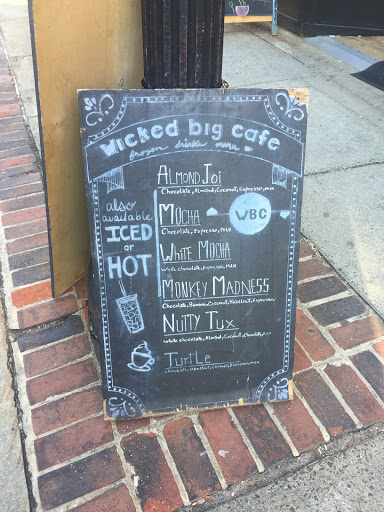 Wicked big cafe
frozen drinks menu
Almond Joi
Chocolate, Almond, Coconut, Espresso, Milk
Mocha
Chocolate, Espresso, Milk
WBC
White Mocha
White chocolate, Espresso, Milk
Monkey Madness
Chocolate, Banana, Coconut, Hazelnut, Espresso
Nutty Tux
White chocolate, Almond, Coconut, Chocolate
Turtle
Chocolate, Hazelnut, Caramel
also
available
ICED
or
HOT